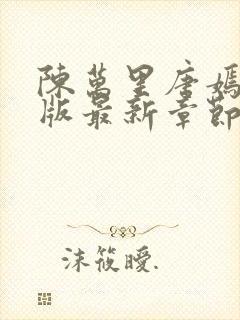 陳萬里唐嫣
版最新章節
沫筱曖.